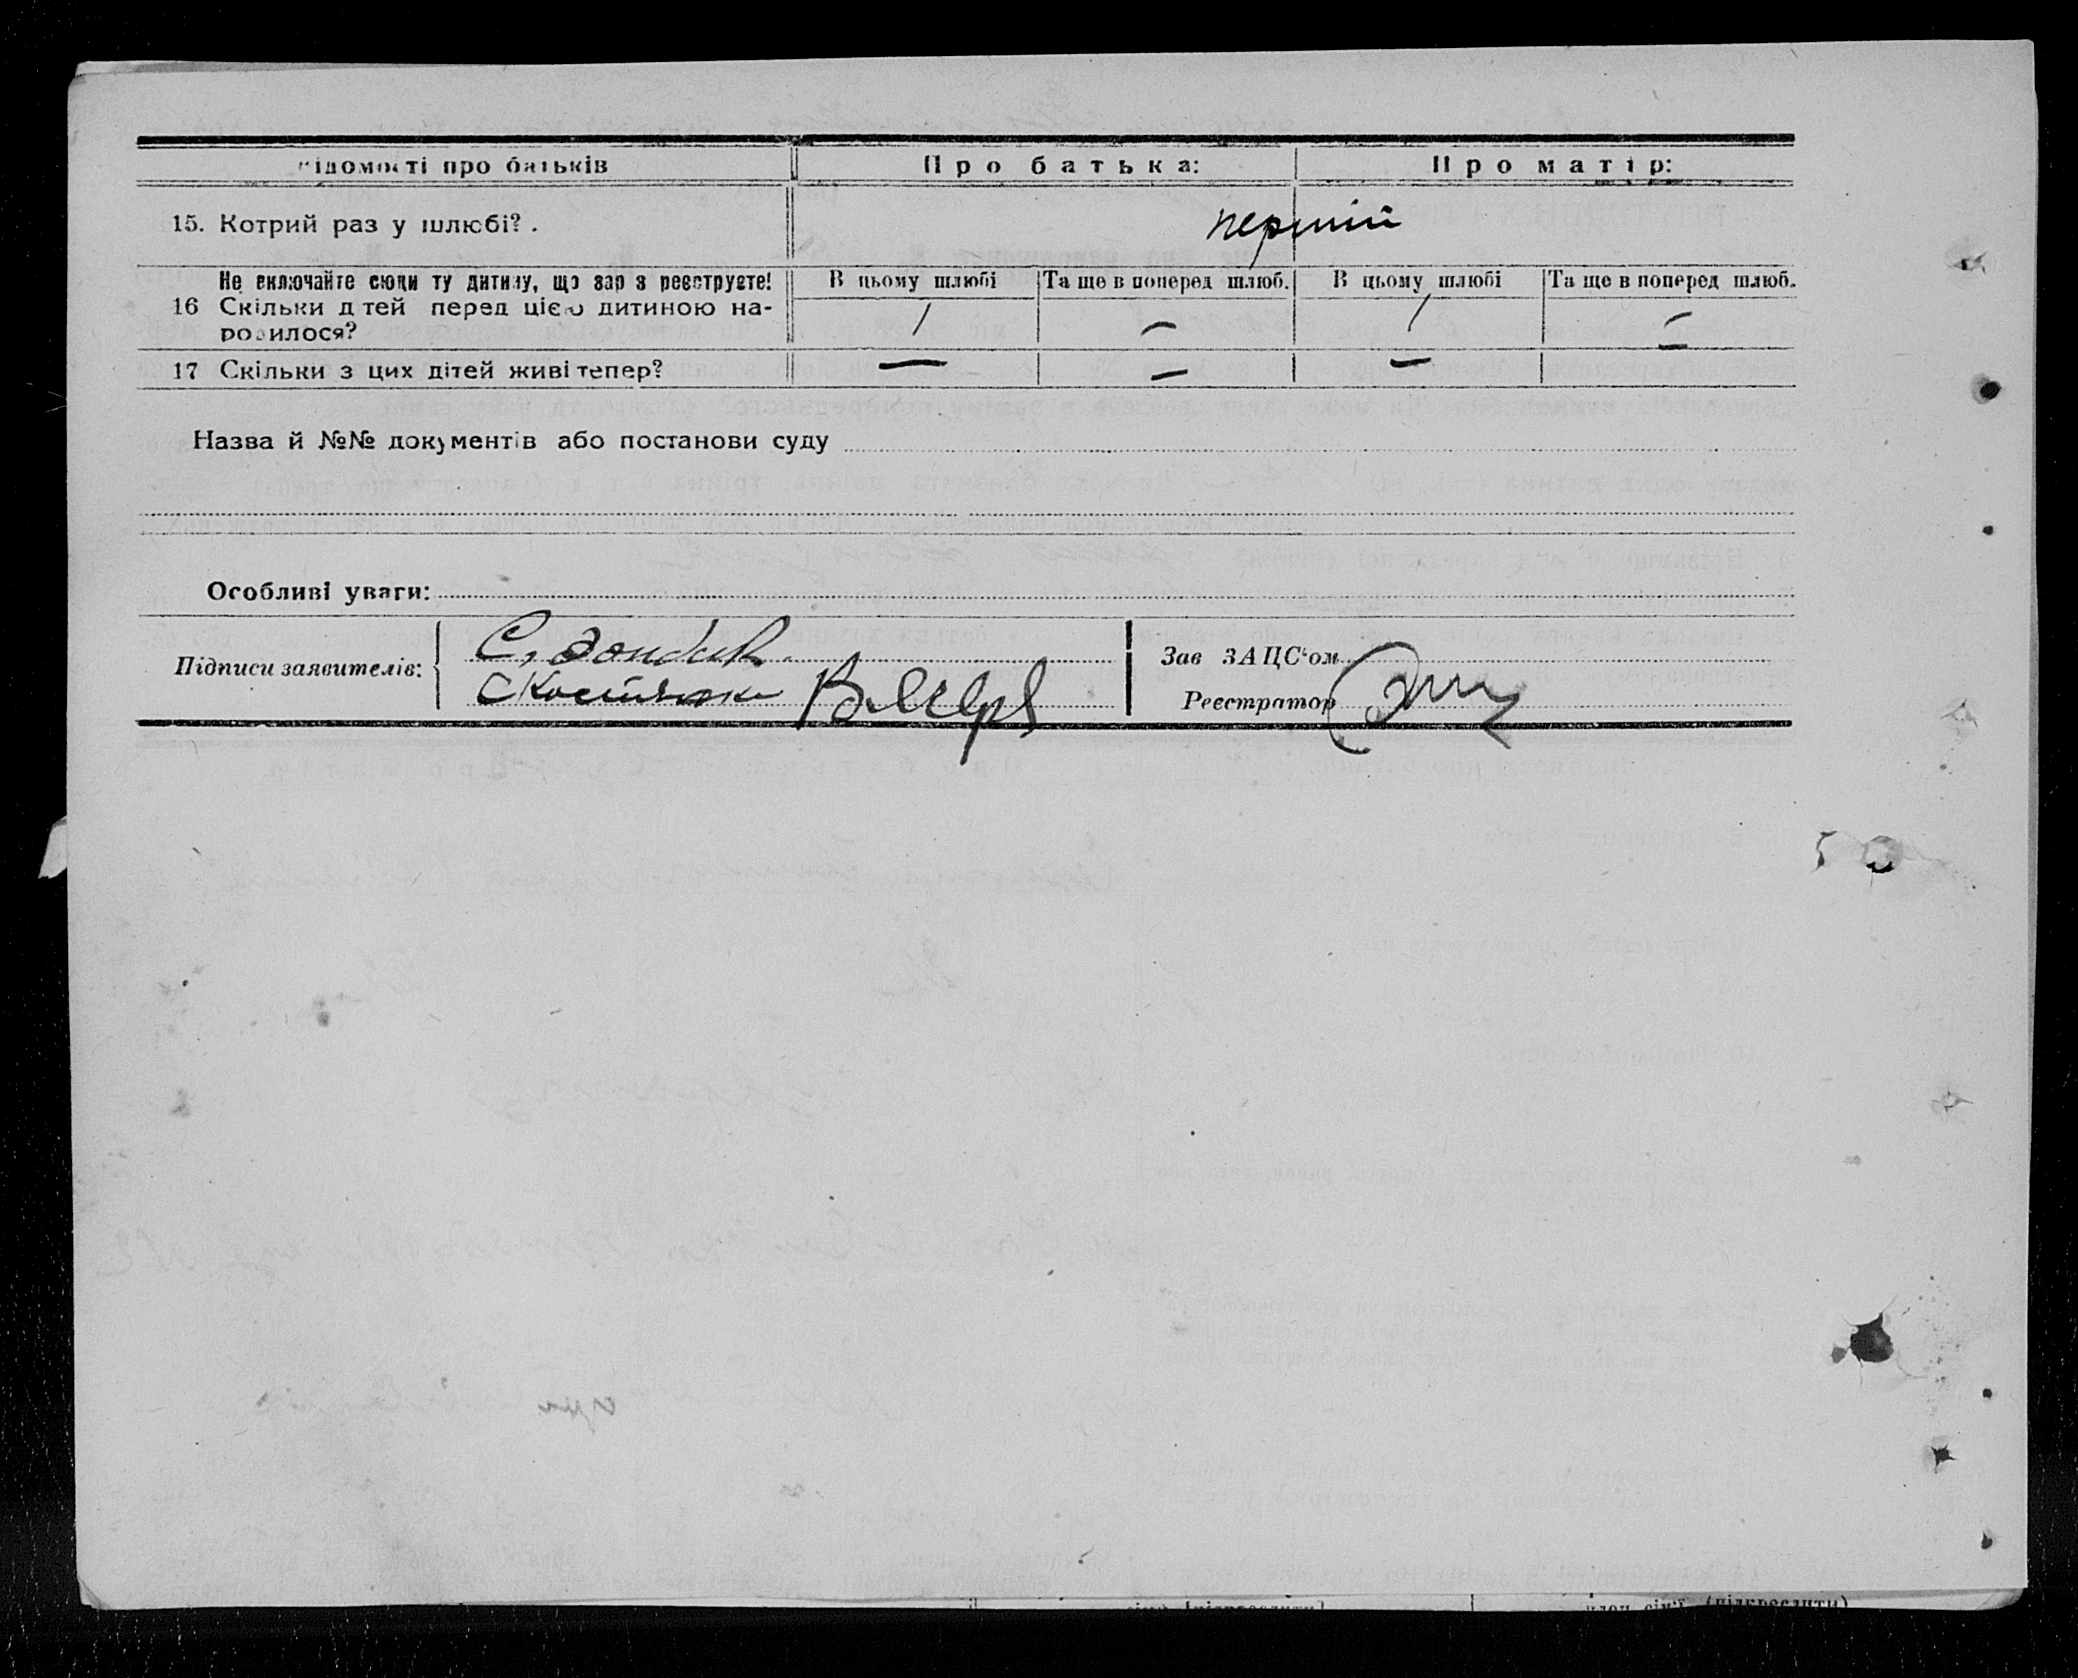 ідомості про батьків Про батька: Про матір:
15. Котрий раз у шлюбі? . перший
Не включайте сюди ту дитину, що зар з реєструєте! В цьому шлюбі Та ще в поперед шлюб. В цьому шлюбі Та ще в поперед шлюб.
16 Скільки д тей перед цією дитиною на-
родилося? / — / —
17 Скільки з цих дітей живі тепер? — — — —
Назва й №№ документів або постанови суду
Особливі уваги:
Підписи заявителів: Зав ЗАЦС'ом
Реєстратор
сім'ї (підкреслити)